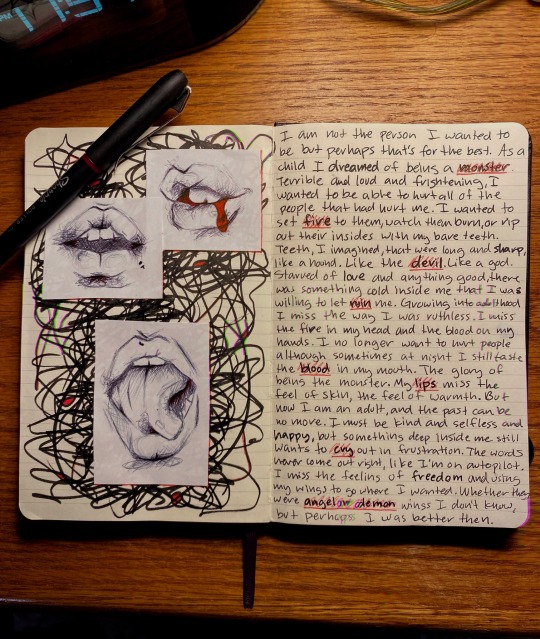 I am not the person I wanted to
be but perhaps that's for the best. As a
child I dreamed of being a monster.
Terrible and loud and frightening, I
wanted to be able to hurt all of the
people that had hurt me. I wanted to
set fire to them, watch them burn, or rip
out their insides with my bare teeth.
Teeth, I imagined, that were long and sharp,
like a hound. Like the devil. Like a god.
Starved of love and anything good, there
was something cold inside me that I was
willing to let ruin me. Growing into adulthood
I miss the way I was ruthless. I miss
the fire in my head and the blood on my
hands. I no longer want to hurt people
although sometimes at night I still taste
the blood in my mouth. The glory of
being the monster. My lips miss the
feel of skin, the feel of warmth. But
now I am an adult, and the past can be
no more. I must be kind and selfless and
happy, but something deep inside me still
wants to cry out in frustration. The words
never come out right, like I'm on autopilot.
I miss the feelins of freedom and using
my wings to go where I wanted. Whether they
were angel or demon wings I don't know,
but perhaps I was better then.